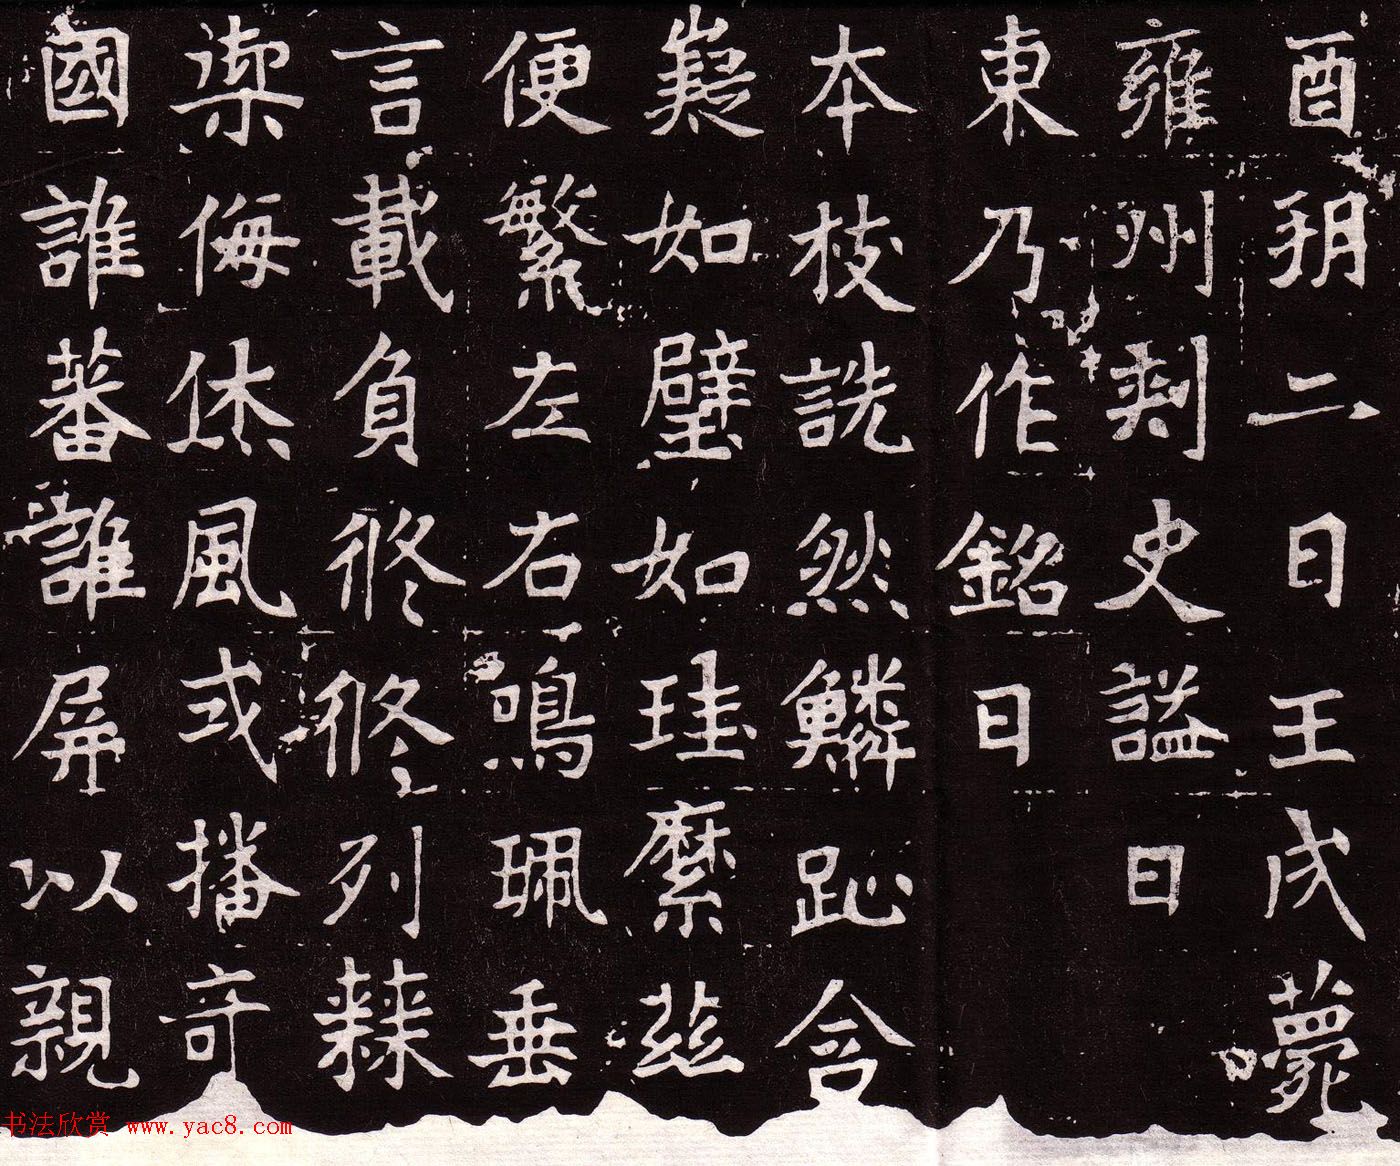 酉朔二日王戌薨
雍州刺史謚曰
東乃作銘曰
本枝詵然麟趾含
嶷如璧如珪縻茲
便繁左右鳴珮垂
言載負脩脩列棘
禦侮休風或播奇
國誰蕃誰屏以親
书法欣赏 www.yac8.com